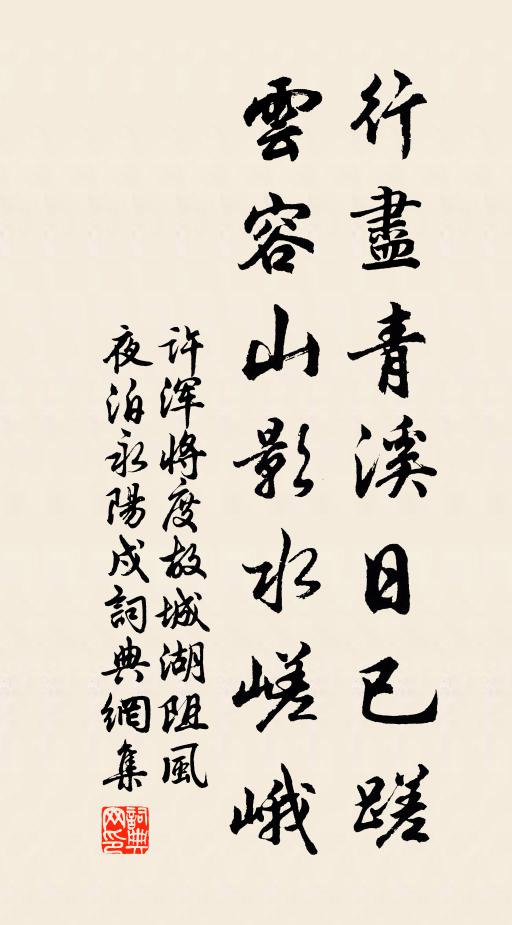 行盡青溪日已蹉
雲容山影水嵯峨
許渾將度故城湖阻風
夜泊永陽戍詞典網集
詞典網印